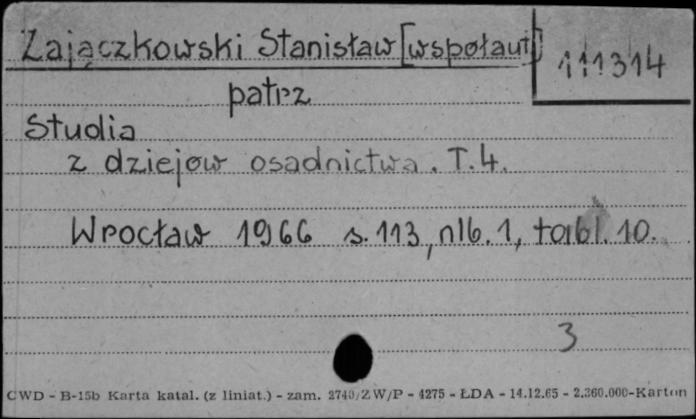 Zajączkowski Stanisław [współaut.]
111314
patrz
Studia
z dziejów osadnictwa. T.4.
Wrocław 1966 s. 113, nlb. 1, tabl. 10.
3
CWD - B-15b Karta katal. (z liniat.) - zam. 2740/ZW/P - 4275 - ŁDA - 14.12.65 - 2.360.000-Karton